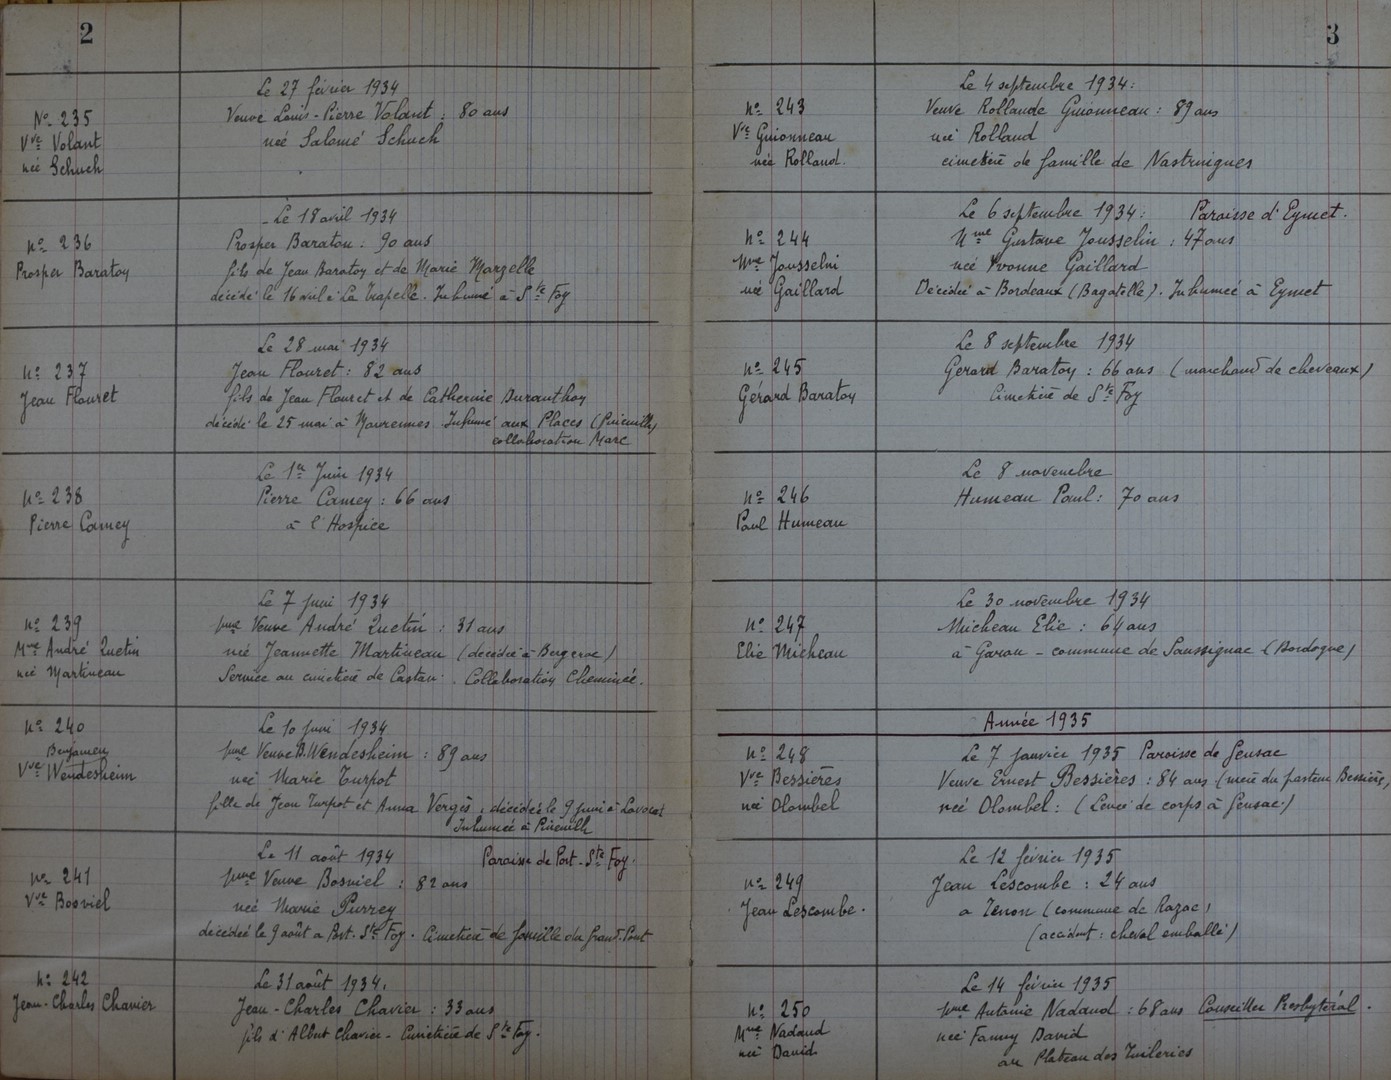 2
Nº 235
Vve Volant
née Schuch
Le 27 février 1934
Veuve Louis-Pierre Volant : 80 ans
née Salomé Schuch
nº 236
Prosper Baratoy
Le 18 avril 1934
Prosper Baratou : 90 ans
fils de Jean Baratoy et de Marie Marzelle
décédé le 16 avril à La Trapelle. Inhumé à Ste Foy
nº 237
Jean Flouret
Le 28 mai 1934
Jean Flouret : 82 ans
fils de Jean Flouret et de Catherine Duranthoy
décédé le 25 mai à Inhumé aux Places (Pineuilh)
collaboration Marc
nº 238
Pierre Camey
Le 1er Juin 1934
Pierre Camey : 66 ans
à l'Hospice
nº 239
Mme André Quetin
née Martineau
Le 7 juin 1934
Mme Veuve André Quetin : 31 ans
née Jeannette Martineau (décédée à Bergerac)
Service au cimetière de Collaboration Cheminée.
nº 240
Benjamin
Vve Wendesheim
Le 10 juin 1934
Mme Veuve B. Wendesheim : 89 ans
née Marie Turpot
fille de Jean Turpot et Anna Vergès, décédée le 9 juin à
Inhumée à Pineuilh
nº 241
Vve Bosviel
Le 11 août 1934 Paroisse de Port-Ste Foy.
Mme Veuve Bosviel : 82 ans
née Marie Purrey
décédée le 9 août à Port-Ste Foy. Cimetière de famille du Grand-Pont
nº 242
Jean-Charles Chavier
Le 31 août 1934.
Jean-Charles Chavier : 33 ans
fils d'Albert Chavier - Cimetière de Ste Foy.
3
nº 243
Vve Guionneau
née Rolland.
Le 4 septembre 1934 :
Veuve Rollande Guionneau : 89 ans
née Rolland
cimetière de famille de Nastringues
nº 244
Mme Jousselin
née Gaillard
Le 6 septembre 1934 : Paroisse d'Eymet.
Mme Gustave Jousselin : 47 ans
née Yvonne Gaillard
Décédée à Bordeaux (Bagatelle). Inhumée à Eymet
nº 245
Gérard Baratoy
Le 8 septembre 1934
Gérard Baratoy : 66 ans (marchand de cheveaux)
Cimetière de Ste Foy
nº 246
Paul Humeau
Le 8 novembre
Humeau Paul : 70 ans
nº 247
Elie Micheau
Le 30 novembre 1934
Micheau Elie : 64 ans
à Garau - commune de Saussignac (Dordogne)
Année 1935
nº 248
Vve Bessières
née Olombel
Le 7 janvier 1935 Paroisse de Gensac
Veuve Ernest Bessières : 84 ans (mère du pasteur Bessières)
née Olombel : (Levée de corps à Gensac.)
nº 249
Jean Lescombe.
Le 12 février 1935
Jean Lescombe : 24 ans
à Tenon (commune de Razac)
(accident : cheval emballé)
nº 250
Mme Nadaud
née David
Le 14 février 1935
Mme Antoine Nadaud : 68 ans Conseiller Presbytéral.
née Fanny David
au Plateau des Tuileries